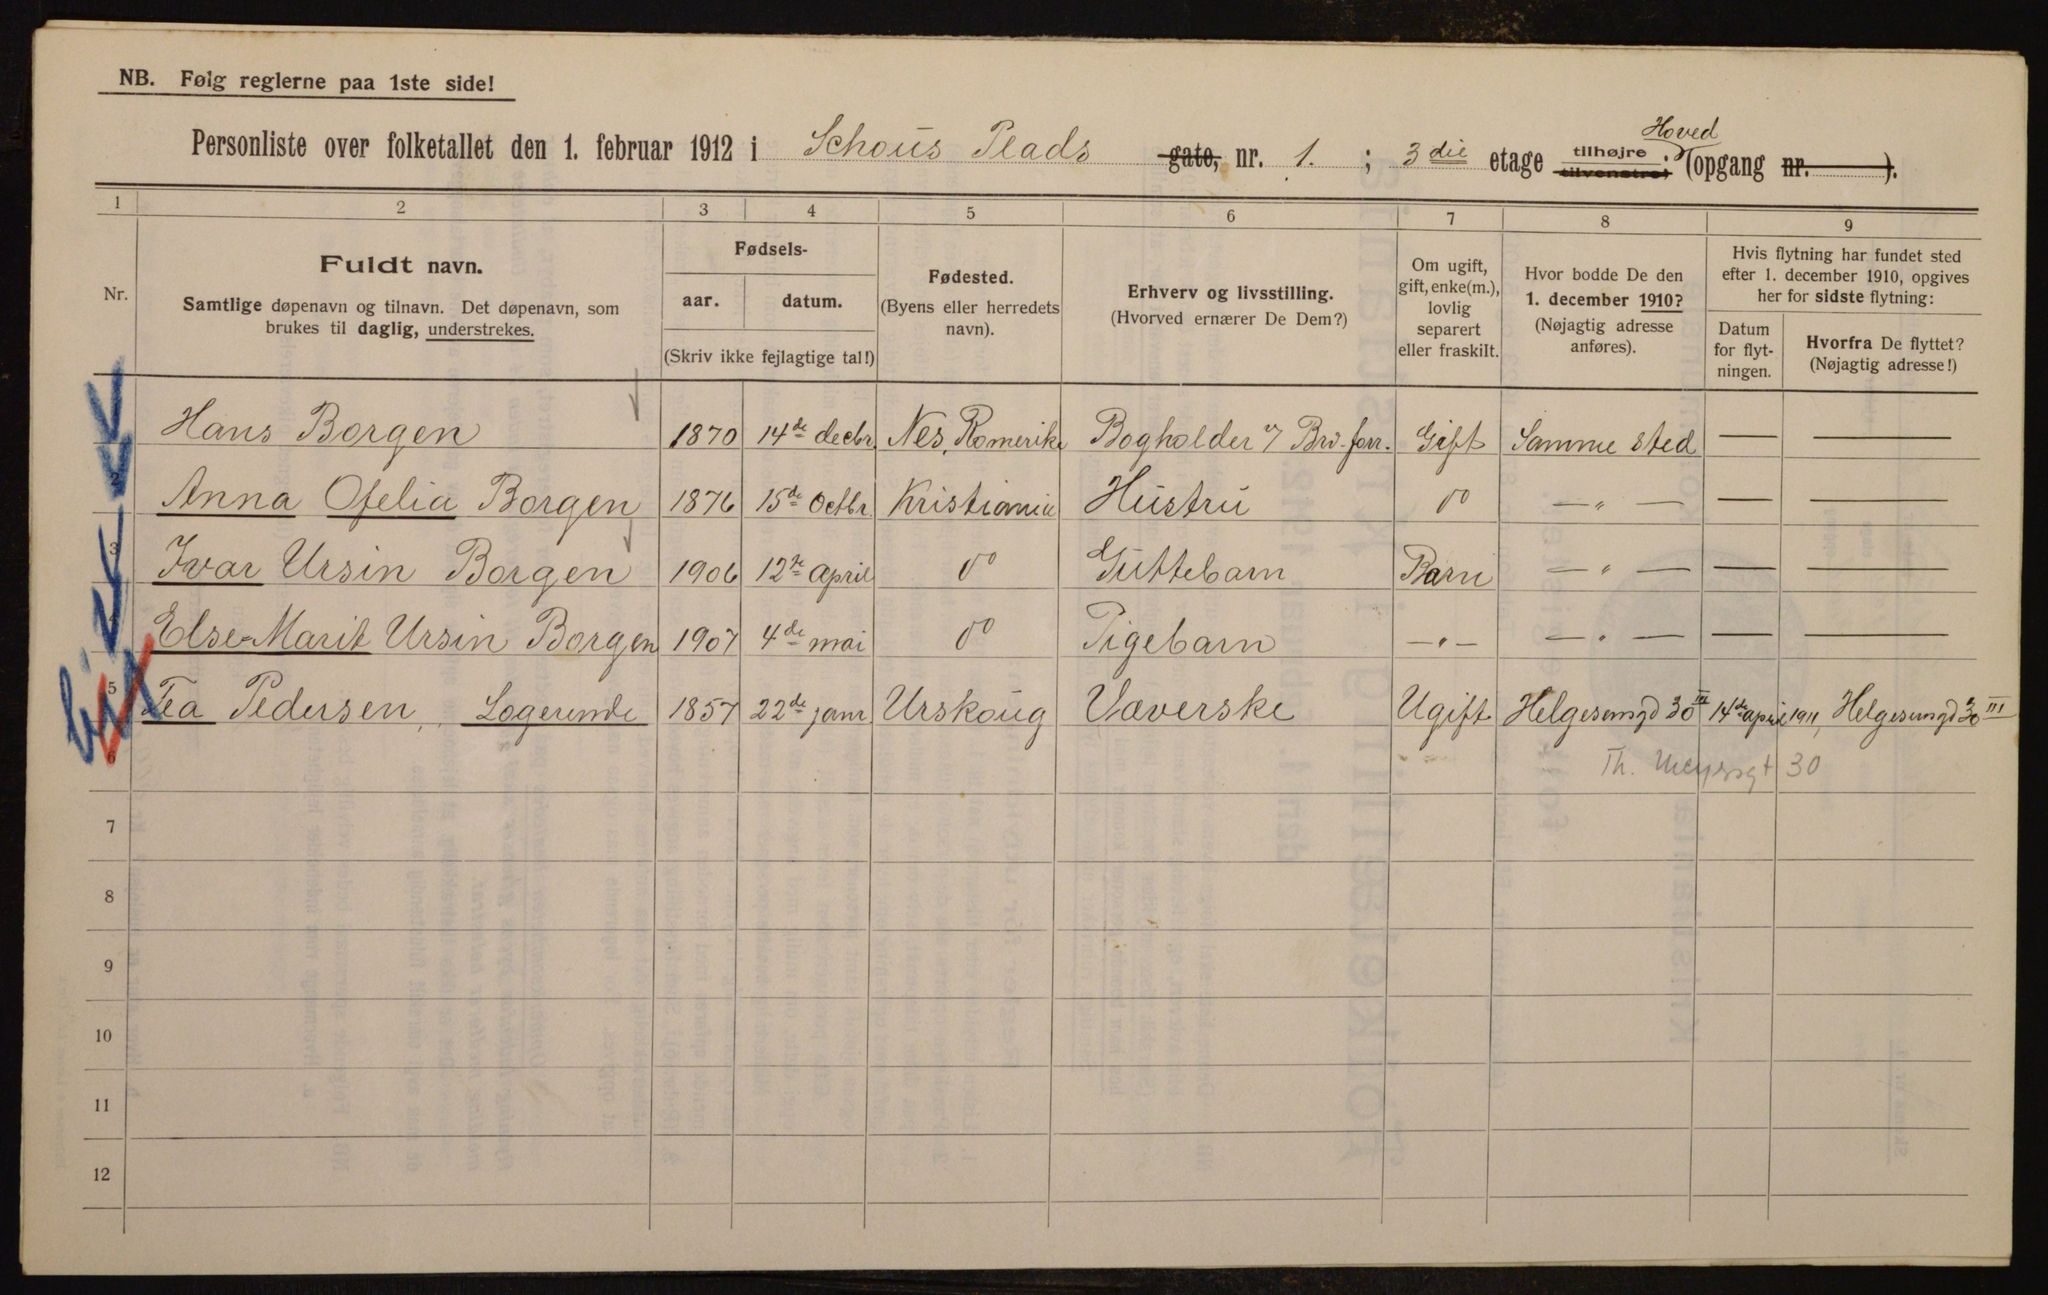 NB. Følg reglerne paa 1ste side!
Personliste over folketallet den 1. februar 1912 i Schous Plads gate, nr. 1. ; 3die etage tilhøjre tilvenstre. Hoved (opgang nr. ).
1 2 3 4 5 6 7 8 9
Nr.
Fuldt navn.
Samtlige døpenavn og tilnavn. Det døpenavn, som
brukes til daglig, understrekes.
Fødsels-
aar. datum.
(Skriv ikke fejlagtige tal!)
Fødested.
(Byens eller herredets
navn).
Erhverv og livsstilling.
(Hvorved ernærer De Dem?)
Om ugift,
gift, enke(m.),
lovlig
separert
eller fraskilt.
Hvor bodde De den
1. december 1910?
(Nøjagtig adresse
anføres).
Hvis flytning har fundet sted
efter 1. december 1910, opgives
her for sidste flytning:
Datum
for flyt-
ningen.
Hvorfra De flyttet?
(Nøjagtig adresse!)
Hans Borgen 1870 14de decbr. Nes, Romerike Bogholder Gift Samme sted — —
2 Anna Ofelia Borgen 1876 15de octbr. Kristiania Hustru do — " — — —
3 Ivar Ursin Borgen 1906 12te april do Guttebarn Barn — " — — —
4 Else-Marit Ursin Borgen 1907 4de mai do Pigebarn — " — — " — — —
5 Tea Pedersen, Logerende 1857 22de janr Urskoug Væverske Ugift Helgesensgd 30 III 14de april 1911, Helgesensgd 30 III
6 Th. Meyersgt 30
7
8
9
10
11
12